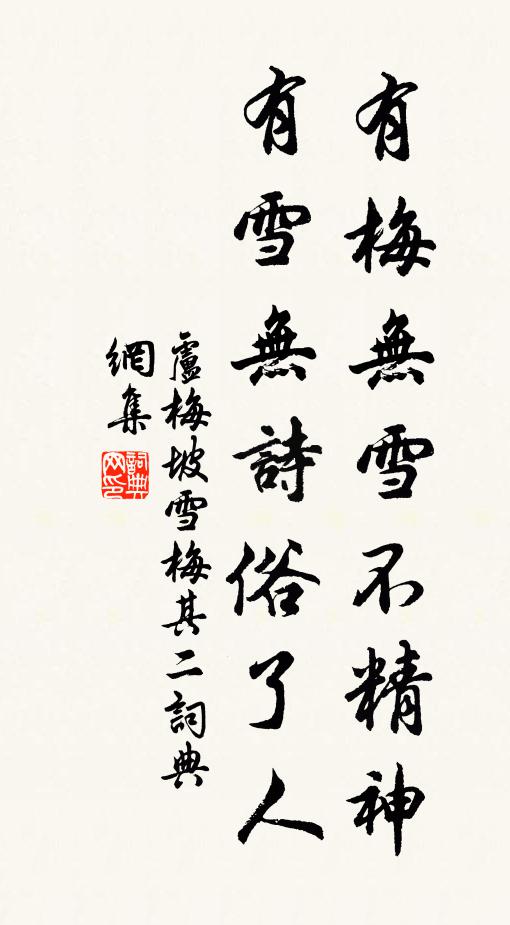 有梅無雪不精神
有雪無詩俗了人
盧梅坡雪梅其二詞典
網集
詞典
网印